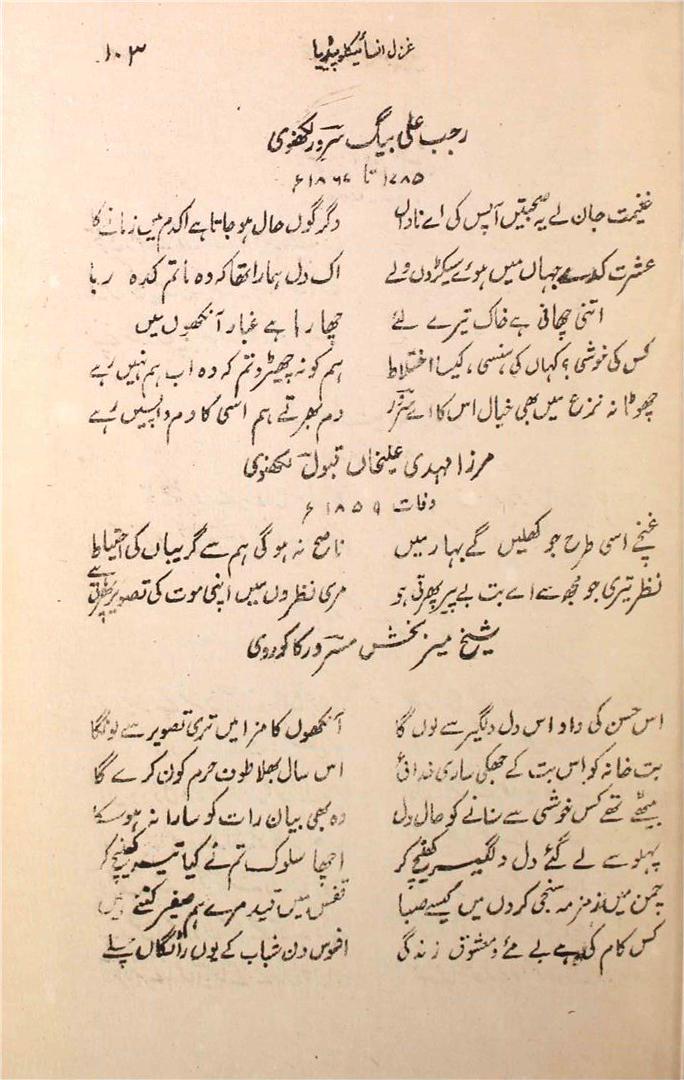 غزل انسائیکلوپیڈیا ۱۰۳
رجب علی بیگ سرور لکھنوی
۱۷۸۵ تا ۱۸۶۷ء
غنیمت جان لے یہ صحبتیں آپس کی اے ناداں دگرگوں حال ہو جاتا ہے اکدم میں زمانے کا
عشرت کدے جہاں میں ہوئے سیکڑوں ولے اک دل ہمارا تھا کہ وہ ماتم کدہ رہا
اتنی چھانی ہے خاک تیرے لئے چھا رہا ہے غبار آنکھوں میں
کس کی خوشی؟ کہاں کی ہنسی، کیسا اختلاط ہم کو نہ چھیڑو تم کہ وہ اب ہم نہیں رہے
چھوٹا نہ نزع میں بھی خیال اس کا اے سرور دم بھرتے ہم اسی کا دم واپسیں رہے
مرزا مہدی علیخاں قبول لکھنوی
وفات ۱۸۵۹ء
غنچے اسی طرح جو کھلیں گے بہار میں ناصح نہ ہو گی ہم سے گریباں کی احتیاط
نظر تیری جو مجھ سے اے بت بے پیر پھرتی ہو مری نظروں میں اپنی موت کی تصویر پھرتی ہے
شیخ میر بخش مسرور کاکوروی
اس حسن کی داد اس دل دلگیر سے لوں گا آنکھوں کا مزا میں تری تصویر سے لونگا
بت خانہ کو اس بت کے جھکی ساری خدائی اس سال بھلا طوف حرم کون کرے گا
بیٹھے تھے کس خوشی سے سنانے کو حال دل وہ بھی بیان رات کو سارا نہ ہو سکا
پہلو سے لے گئے دل دلگیر کھینچ کر اچھا سلوک تم نے کیا تیر کھینچ کر
چمن میں زمزمہ سنجی کروں میں کیسے صبا قفس میں قید مرے ہم صغیر کتنے ہیں
کس کام کی ہے بے مئے و معشوق زندگی افسوس دن شباب کے یوں رائگاں چلے